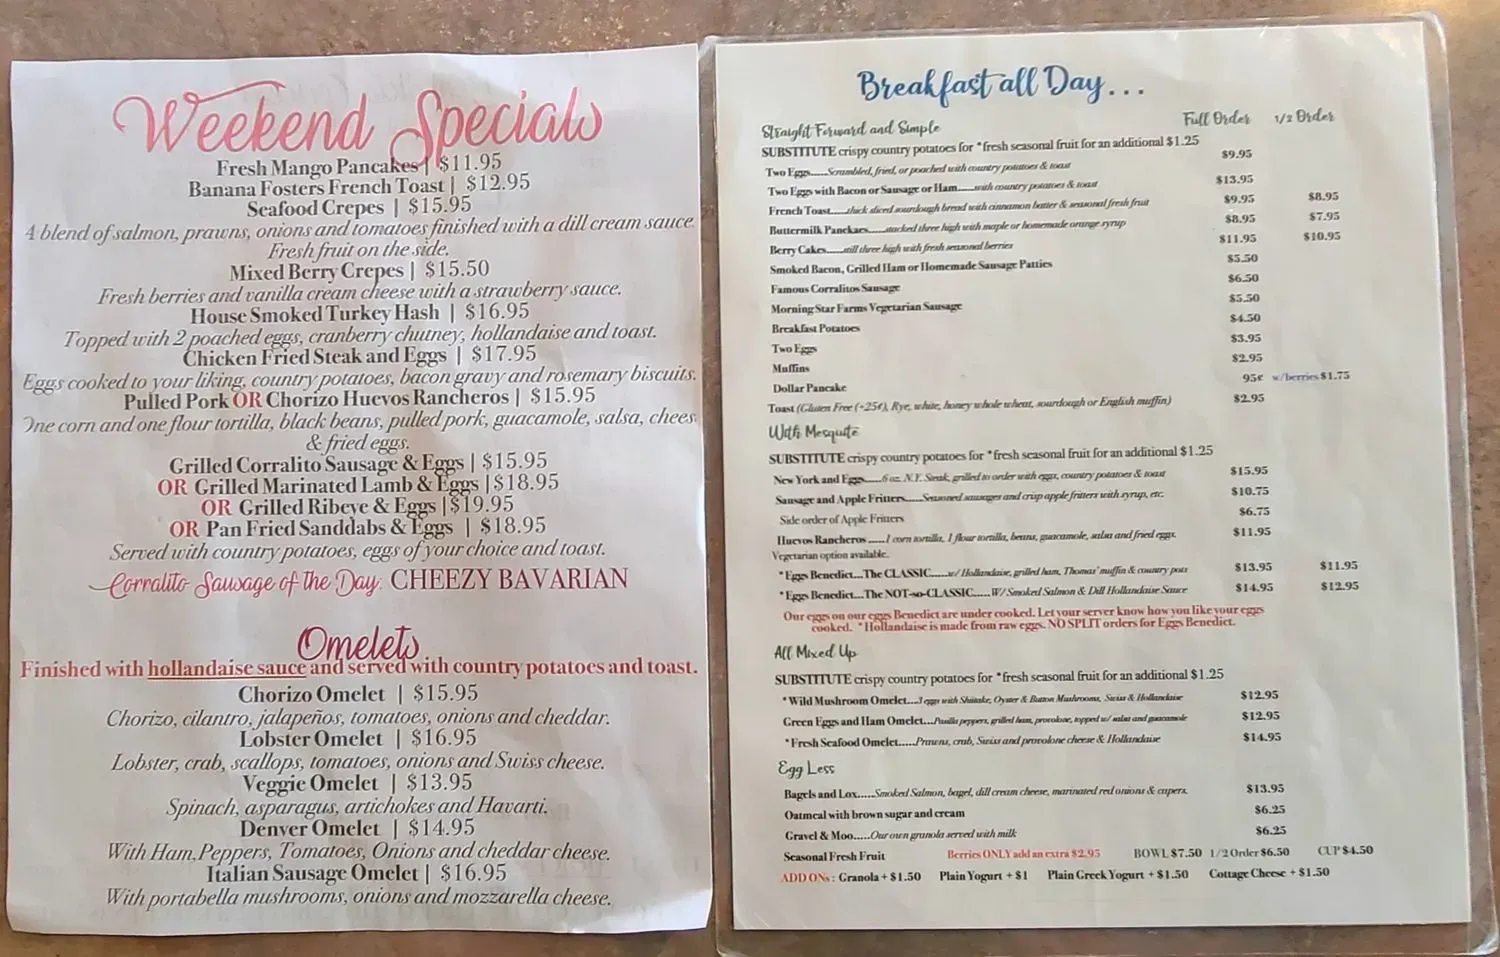 Weekend Specials
Fresh Mango Pancakes | $11.95
Banana Fosters French Toast | $12.95
Seafood Crepes | $15.95
A blend of salmon, prawns, onions and tomatoes finished with a dill cream sauce
Fresh fruit on the side.
Mixed Berry Crepes | $15.50
Fresh berries and vanilla cream cheese with a strawberry sauce.
House Smoked Turkey Hash | $16.95
Topped with 2 poached eggs, cranberry chutney, hollandaise and toast.
Chicken Fried Steak and Eggs | $17.95
Eggs cooked to your liking, country potatoes, bacon gravy and rosemary biscuits.
Pulled Pork OR Chorizo Huevos Rancheros | $15.95
One corn and one flour tortilla, black beans, pulled pork, guacamole, salsa, chees
& fried eggs.
Grilled Corralito Sausage & Eggs | $15.95
OR Grilled Marinated Lamb & Eggs | $18.95
OR Grilled Ribeye & Eggs | $19.95
OR Pan Fried Sanddabs & Eggs | $18.95
Served with country potatoes, eggs of your choice and toast.
Corralito Sausage of the Day: CHEEZY BAVARIAN
Omelets
Finished with hollandaise sauce and served with country potatoes and toast.
Chorizo Omelet | $15.95
Chorizo, cilantro, jalapeños, tomatoes, onions and cheddar.
Lobster Omelet | $16.95
Lobster, crab, scallops, tomatoes, onions and Swiss cheese.
Veggie Omelet | $13.95
Spinach, asparagus, artichokes and Havarti.
Denver Omelet | $14.95
With Ham,Peppers, Tomatoes, Onions and cheddar cheese.
Italian Sausage Omelet | $16.95
With portabella mushrooms, onions and mozzarella cheese.
Breakfast all Day...
Straight Forward and Simple Full Order 1/2 Order
SUBSTITUTE crispy country potatoes for *fresh seasonal fruit for an additional $1.25
Two Eggs.....Scrambled, fried, or poached with country potatoes & toast $9.95
Two Eggs with Bacon or Sausage or Ham.....with country potatoes & toast $13.95
French Toast.....thick sliced sourdough bread with cinnamon butter & seasonal fresh fruit $9.95 $8.95
Buttermilk Panckaes.....stacked three high with maple or homemade orange syrup $8.95 $7.95
Berry Cakes.....still three high with fresh seasonal berries $11.95 $10.95
Smoked Bacon, Grilled Ham or Homemade Sausage Patties $5.50
Famous Corralitos Sausage $6.50
Morning Star Farms Vegetarian Sausage $5.50
Breakfast Potatoes $4.50
Two Eggs $3.95
Muffins $2.95
Dollar Pancake 95¢ w/berries $1.75
Toast (Gluten Free (+25¢), Rye, white, honey whole wheat, sourdough or English muffin) $2.95
With Mesquite
SUBSTITUTE crispy country potatoes for *fresh seasonal fruit for an additional $1.25
New York and Eggs.....6 oz. N.Y. Steak, grilled to order with eggs, country potatoes & toast $15.95
Sausage and Apple Fritters.....Seasoned sausages and crisp apple fritters with syrup, etc. $10.75
Side order of Apple Fritters $6.75
Huevos Rancheros .....1 corn tortilla, 1 flour tortilla, beans, guacamole, salsa and fried eggs. $11.95
Vegetarian option available.
*Eggs Benedict...The CLASSIC.....w/ Hollandaise, grilled ham, Thomas' muffin & country pots $13.95 $11.95
*Eggs Benedict...The NOT-so-CLASSIC.....W/ Smoked Salmon & Dill Hollandaise Sauce $14.95 $12.95
Our eggs on our eggs Benedict are under cooked. Let your server know how you like your eggs
cooked. *Hollandaise is made from raw eggs. NO SPLIT orders for Eggs Benedict.
All Mixed Up
SUBSTITUTE crispy country potatoes for *fresh seasonal fruit for an additional $1.25
*Wild Mushroom Omelet...3 eggs with Shiitake, Oyster & Button Mushrooms, Swiss & Hollandaise $12.95
Green Eggs and Ham Omelet...Pasilla peppers, grilled ham, provolone, topped w/ salsa and guacamole $12.95
*Fresh Seafood Omelet.....Prawns, crab, Swiss and provolone cheese & Hollandaise $14.95
Egg Less
Bagels and Lox.....Smoked Salmon, bagel, dill cream cheese, marinated red onions & capers. $13.95
Oatmeal with brown sugar and cream $6.25
Gravel & Moo.....Our own granola served with milk $6.25
Seasonal Fresh Fruit Berries ONLY add an extra $2.95 BOWL $7.50 1/2 Order $6.50 CUP $4.50
ADD ONs : Granola + $1.50 Plain Yogurt + $1 Plain Greek Yogurt + $1.50 Cottage Cheese + $1.50